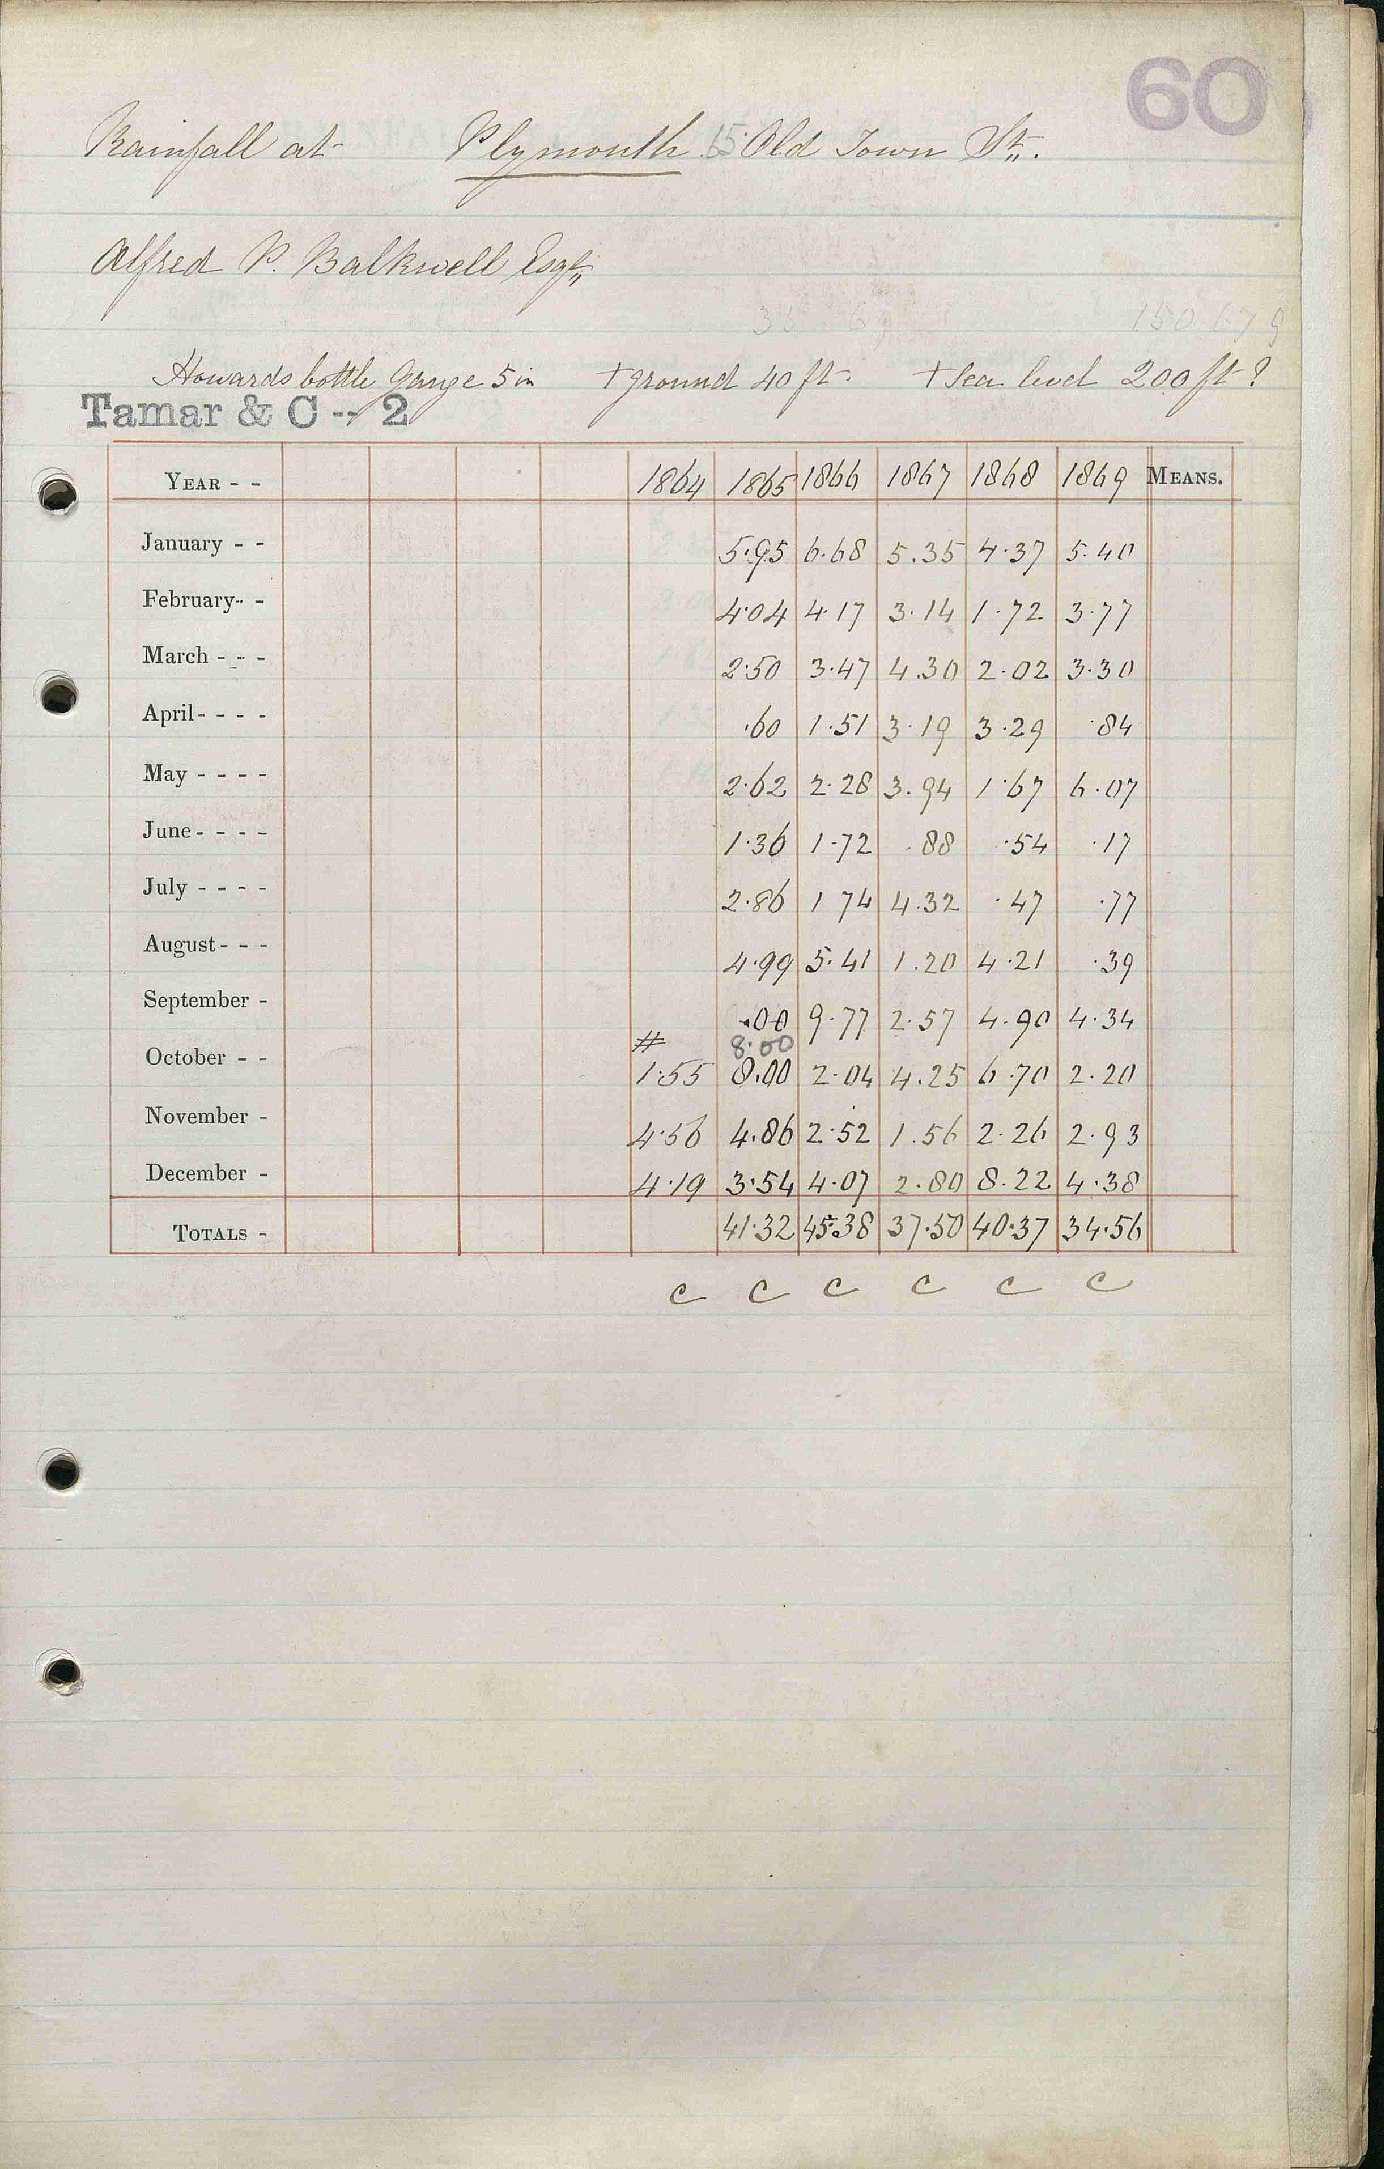 60
Rainfall at Plymouth 15 Old Town St.
Alfred P. Balkwell Esqr.
150 679
Howards bottle Gauge 5 in + ground 40 ft. + Sea level 200 ft ?
Tamar & C -- 2
YEAR - - 1864 1865 1866 1867 1868 1869 MEANS.
January - - 5.95 6.68 5.35 4.37 5.40
February - - 4.04 4.17 3.14 1.72 3.77
March - - - 2.50 3.47 4.30 2.02 3.30
April - - - - .60 1.51 3.19 3.29 .84
May - - - - 2.62 2.28 3.94 1.67 6.07
June - - - - 1.36 1.72 .88 .54 .17
July - - - - 2.86 1 74 4.32 .47 .77
August - - - 4.99 5.41 1.20 4.21 .39
September - .00 9.77 2.57 4.90 4.34
# 8.00
October - - 1.55 8.00 2.04 4.25 6.70 2.20
November - 4.56 4.86 2.52 1.56 2.26 2.93
December - 4.19 3.54 4.07 2.80 8.22 4.38
TOTALS - 41.32 45.38 37.50 40.37 34.56
c c c c c c